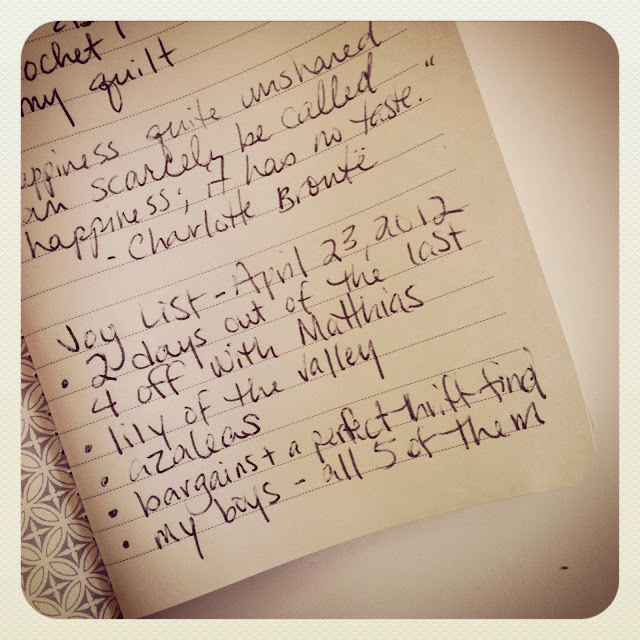 ochet
my quilt
appiness quite unshared
an scarcely be called
happiness; it has no taste."
- Charlotte Brontë
Joy List - April 23, 2012
• 2 days out of the last
4 off with Matthias
• lily of the valley
• azaleas
• bargains + a perfect thrift find
• my boys - all 5 of them